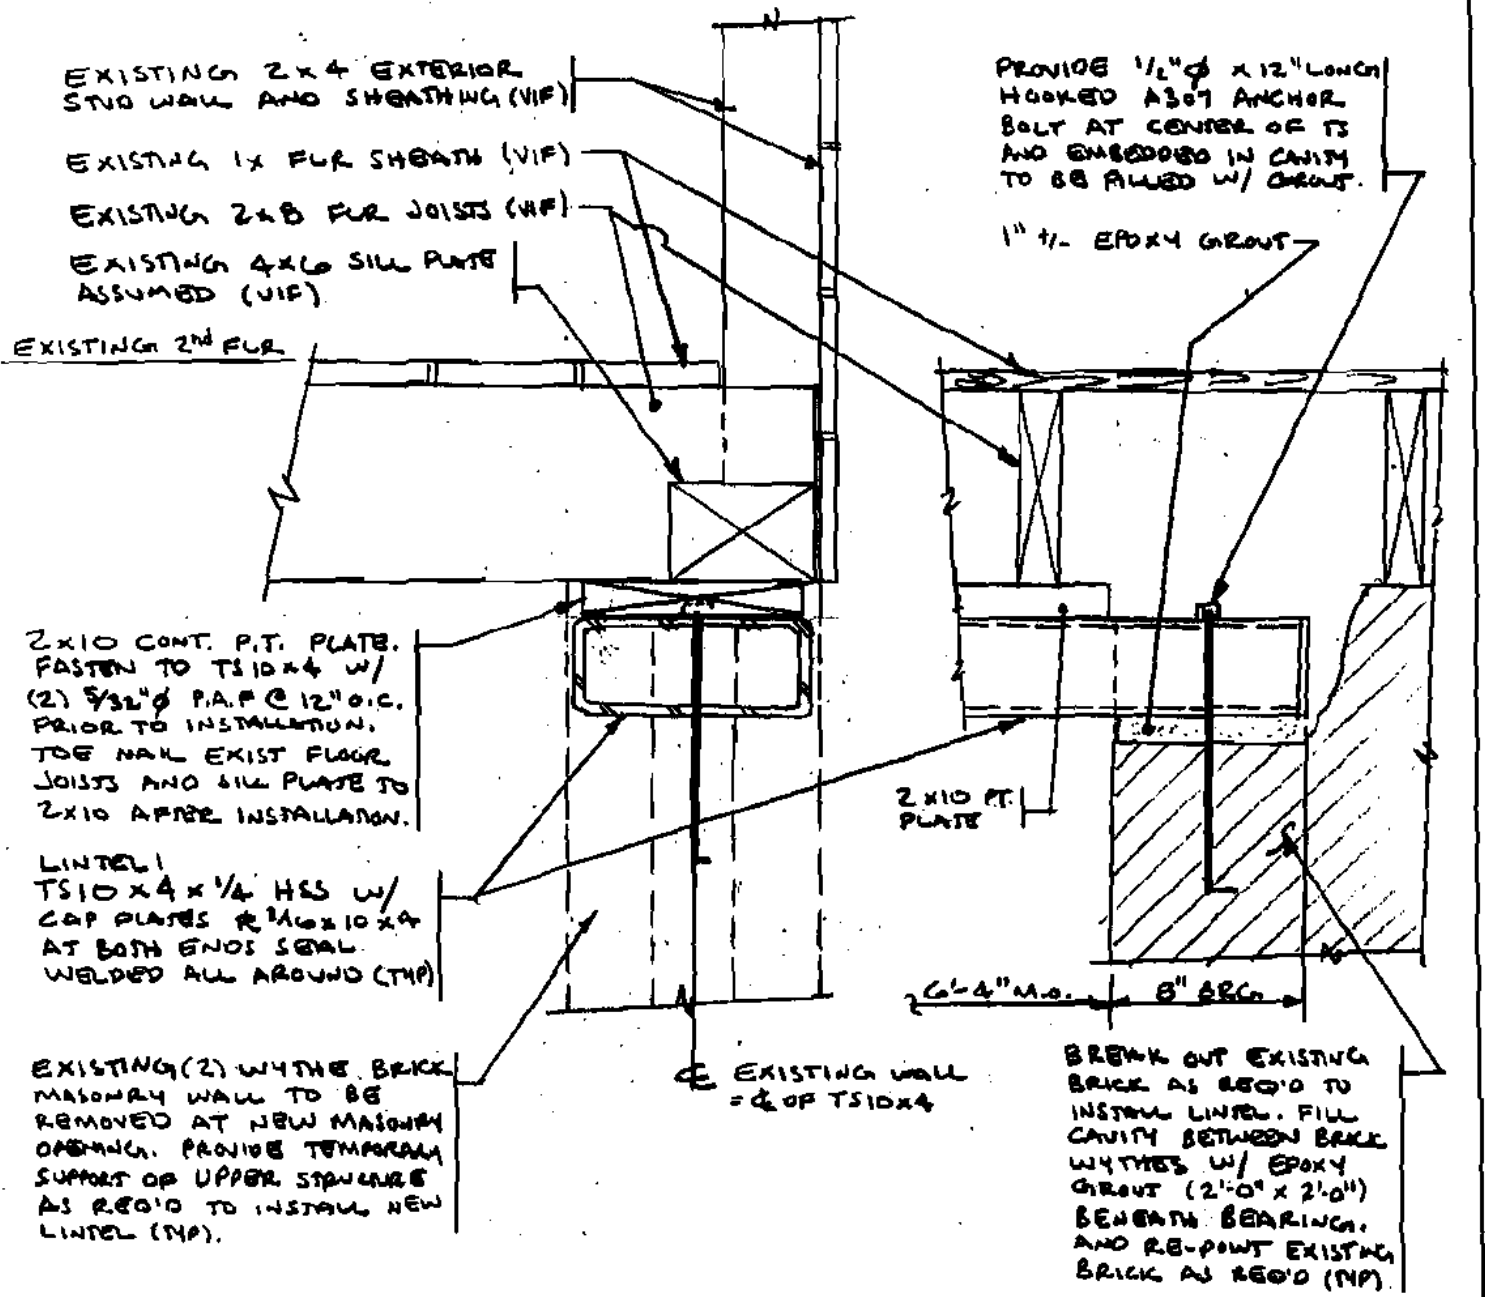 EXISTING 2x4 EXTERIOR
STUD WALL AND SHEATHING (VIF)
EXISTING 1x FLR SHEATH (VIF)
EXISTING 2x8 FLR JOISTS (VIF)
EXISTING 4x6 SILL PLATE
ASSUMED (VIF)
EXISTING 2nd FLR
PROVIDE 1/2"ϕ x 12" LONG
HOOKED A307 ANCHOR
BOLT AT CENTER OF TS
AND EMBEDDED IN CAVITY
TO BE FILLED W/ GROUT.
1" +/- EPOXY GROUT
2x10 CONT. P.T. PLATE.
FASTEN TO TS10x4 W/
(2) 5/32"ϕ P.A.F @ 12" O.C.
PRIOR TO INSTALLATION.
TOE NAIL EXIST FLOOR
JOISTS AND SILL PLATE TO
2x10 AFTER INSTALLATION.
LINTEL:
TS10 x 4 x 1/4 HSS W/
CAP PLATES ℞ 3/16 x 10 x 4
AT BOTH ENDS SEAL
WELDED ALL AROUND (TYP)
EXISTING (2) WYTHE BRICK
MASONRY WALL TO BE
REMOVED AT NEW MASONRY
OPENING. PROVIDE TEMPORARY
SUPPORT OF UPPER STRUCTURE
AS REQ'D TO INSTALL NEW
LINTEL (TYP).
℄ EXISTING WALL
= ℄ OF TS10x4
2x10 P.T.
PLATE
6'-4" M.O.
8" BRG
BREAK OUT EXISTING
BRICK AS REQ'D TO
INSTALL LINTEL. FILL
CAVITY BETWEEN BRICK
WYTHES W/ EPOXY
GROUT (2'-0" x 2'-0")
BENEATH BEARING.
AND RE-POINT EXISTING
BRICK AS REQ'D (TYP)